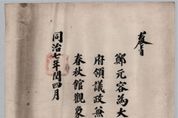 敎旨
鄭元容為大
府領議政兼
春秋館觀象
同治七年閏四月